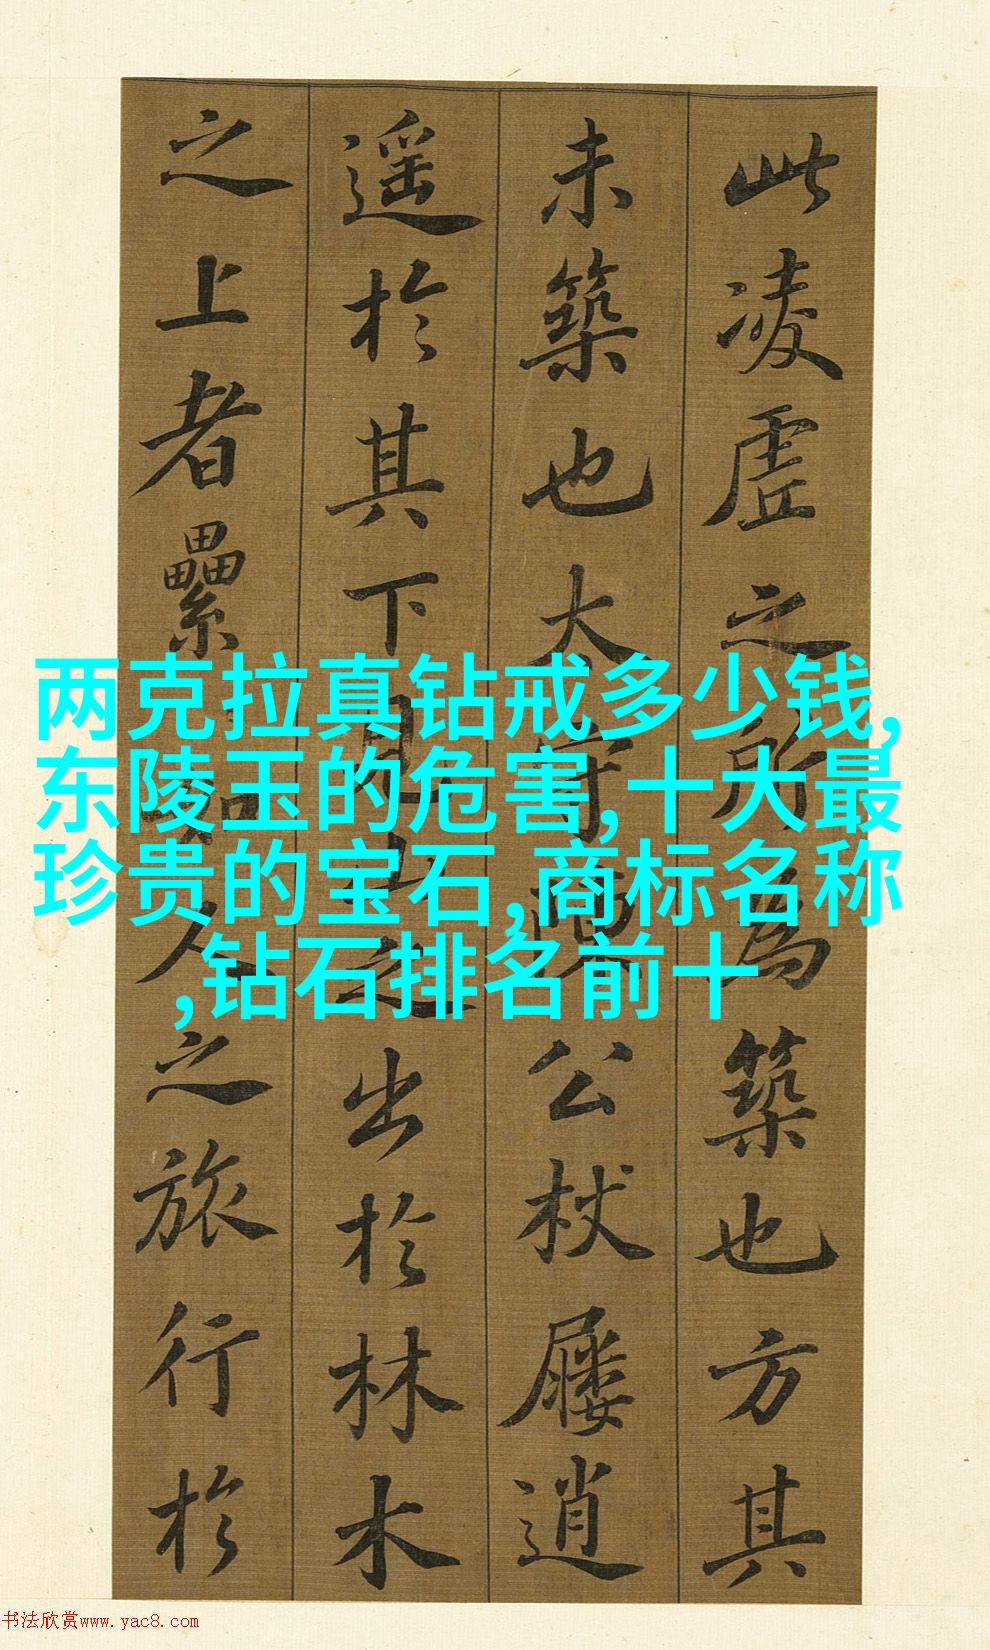 此凌虛之所為築也方其
未築也太守陳公杖屨逍
遥於其下見山之出於林木
之上者纍纍如人之旅行於
两克拉真钻戒多少钱,
东陵玉的危害,十大最
珍贵的宝石,商标名称
,钻石排名前十
书法欣赏www.yac8.com